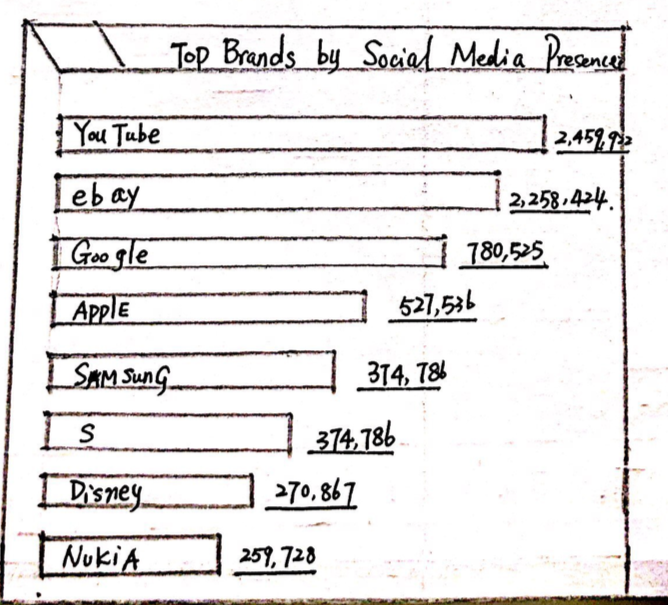 Top Brands by Social Media Presence
YouTube 2,459,922
ebay 2,258,424.
Google 780,525
Apple 527,536
SAMSunG 374,786
S 374,786
Disney 270,867
NukiA 259,728